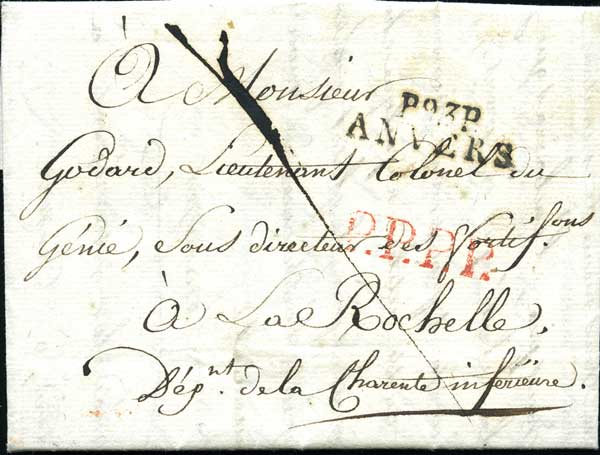 À Monsieur
P.93.P.
ANVERS
Godard, Lieutenant Colonel du
Génie, Sous directeur des Fortif.ons
P.P.P.P.
à La Rochelle.
Dép.nt de la Charente inférieure.